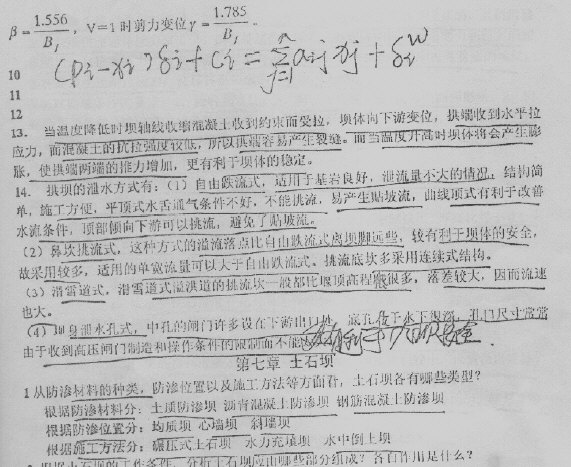 β = 1.556/B₁ , V=1 时剪力变位 γ = 1.785/B₁ .
10 (pi-xi)δi+Ci = Σ(j=1→n) aij xj + δiʷ
11
12
13. 当温度降低时坝轴线收缩混凝土收到约束而受拉,坝体向下游变位,拱端收到水平拉
应力,而混凝土的抗拉强度较低,所以拱端容易产生裂缝。而当温度升高时坝体将会产生膨
胀,使拱端两端的推力增加,更有利于坝体的稳定。
14. 拱坝的泄水方式有:(1)自由跌流式,适用于基岩良好,泄流量不大的情况,结构简
单,施工方便,平顶式水舌通气条件不好,不能挑流,易产生贴坡流,曲线顶式有利于改善
水流条件,顶部倾向下游可以挑流,避免了贴坡流。
(2)鼻坎挑流式,这种方式的溢流落点比自由跌流式离坝脚远些,较有利于坝体的安全,
故采用较多,适用的单宽流量可以大于自由跌流式。挑流底坎多采用连续式结构。
(3)滑雪道式,滑雪道式溢洪道的挑流坎一般都比堰顶高程低很多,落差较大,因而流速
也大。
(4)坝身泄水孔式,中孔的闸门许多设在下游出口处,底孔低于水下很深,孔口尺寸常常
由于收到高压闸门制造和操作条件的限制而不能
第七章 土石坝
1 从防渗材料的种类,防渗位置以及施工方法等方面看,土石坝各有哪些类型?
根据防渗材料分:土质防渗坝 沥青混凝土防渗坝 钢筋混凝土防渗坝
根据防渗位置分:均质坝 心墙坝 斜墙坝
根据施工方法分:碾压式土石坝 水力充填坝 水中倒土坝
根据土石坝的工作条件,分析土石坝应由哪些部分组成?各自作用是什么?